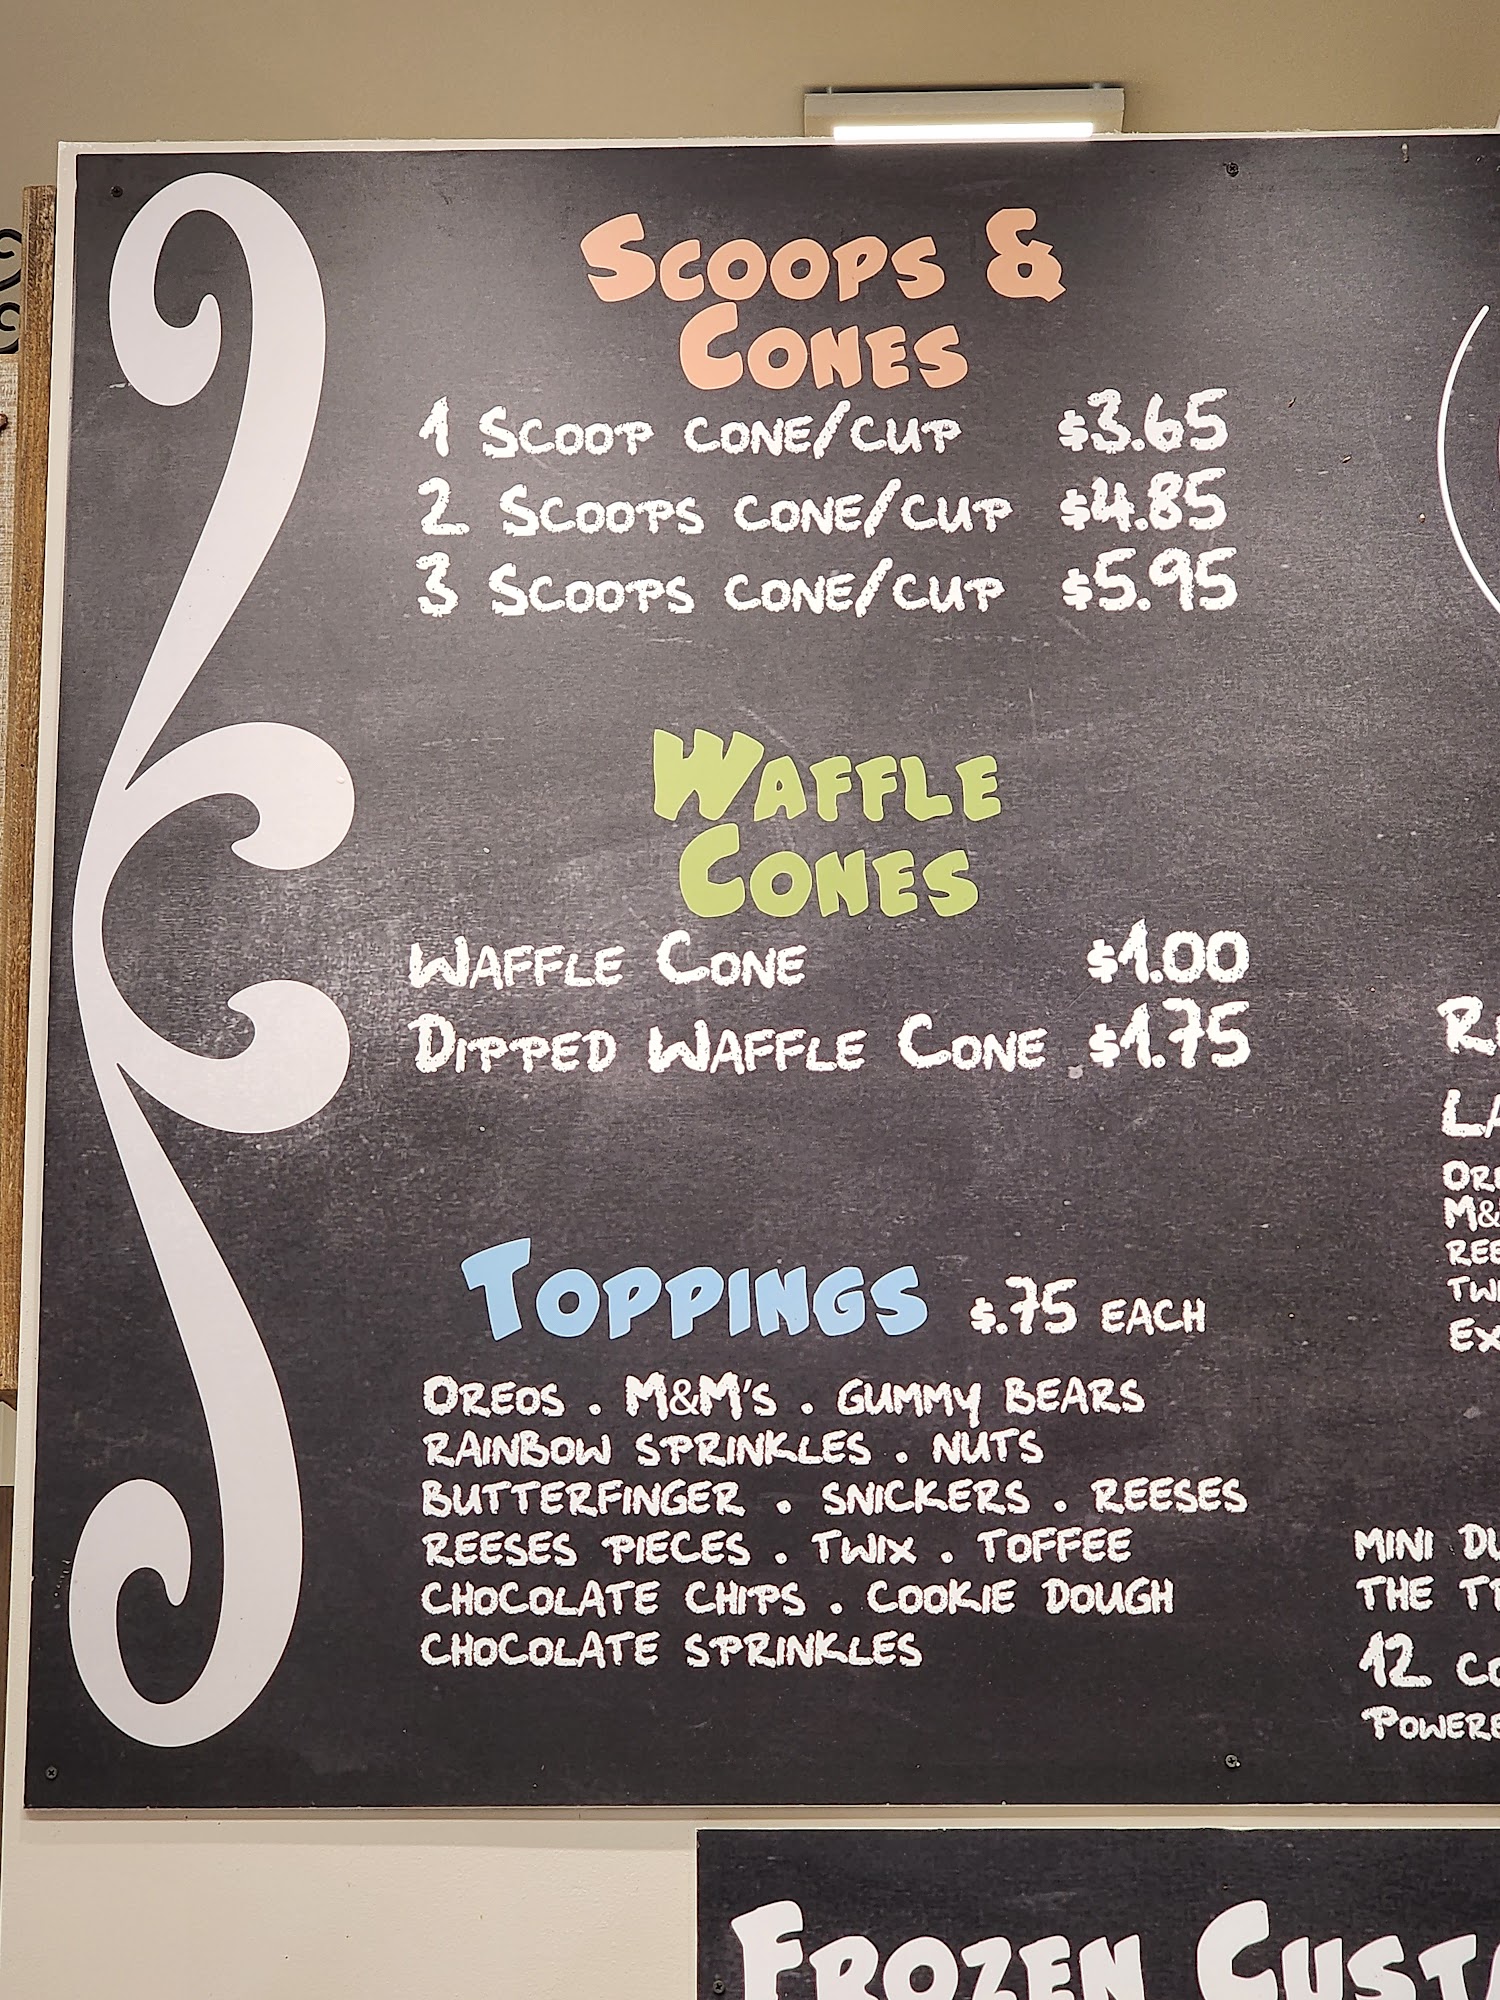 Scoops &
Cones
1 Scoop cone/cup $3.65
2 Scoops cone/cup $4.85
3 Scoops cone/cup $5.95
Waffle
Cones
Waffle Cone $1.00
Dipped Waffle Cone $1.75
Toppings $.75 each
Oreos . M&M's . gummy bears
rainbow sprinkles . nuts
butterfinger . snickers . reeses
reeses pieces . twix . toffee
chocolate chips . cookie dough
chocolate sprinkles
mini
the
12
Frozen